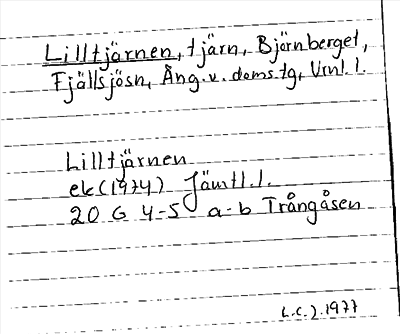 Lilltjärnen, tjärn, Björnberget,
Fjällsjösn, Ång.v. doms.tg, Vrnl.l.
Lilltjärnen
ek (1974) Jämtl.l.
20 G 4-5 a-b Trångåsen
L.C.J. 1977